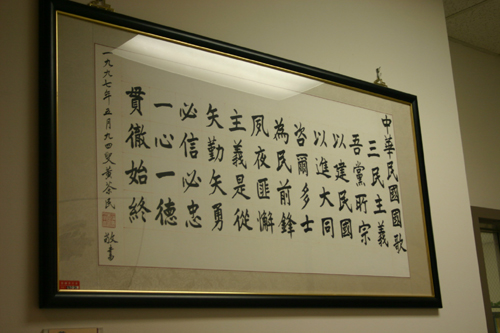 中華民國國歌
三民主義
吾黨所宗
以建民國
以進大同
咨爾多士
為民前鋒
夙夜匪懈
主義是從
矢勤矢勇
必信必忠
一心一德
貫徹始終
一九九七年五月九四叟黃谷民敬書